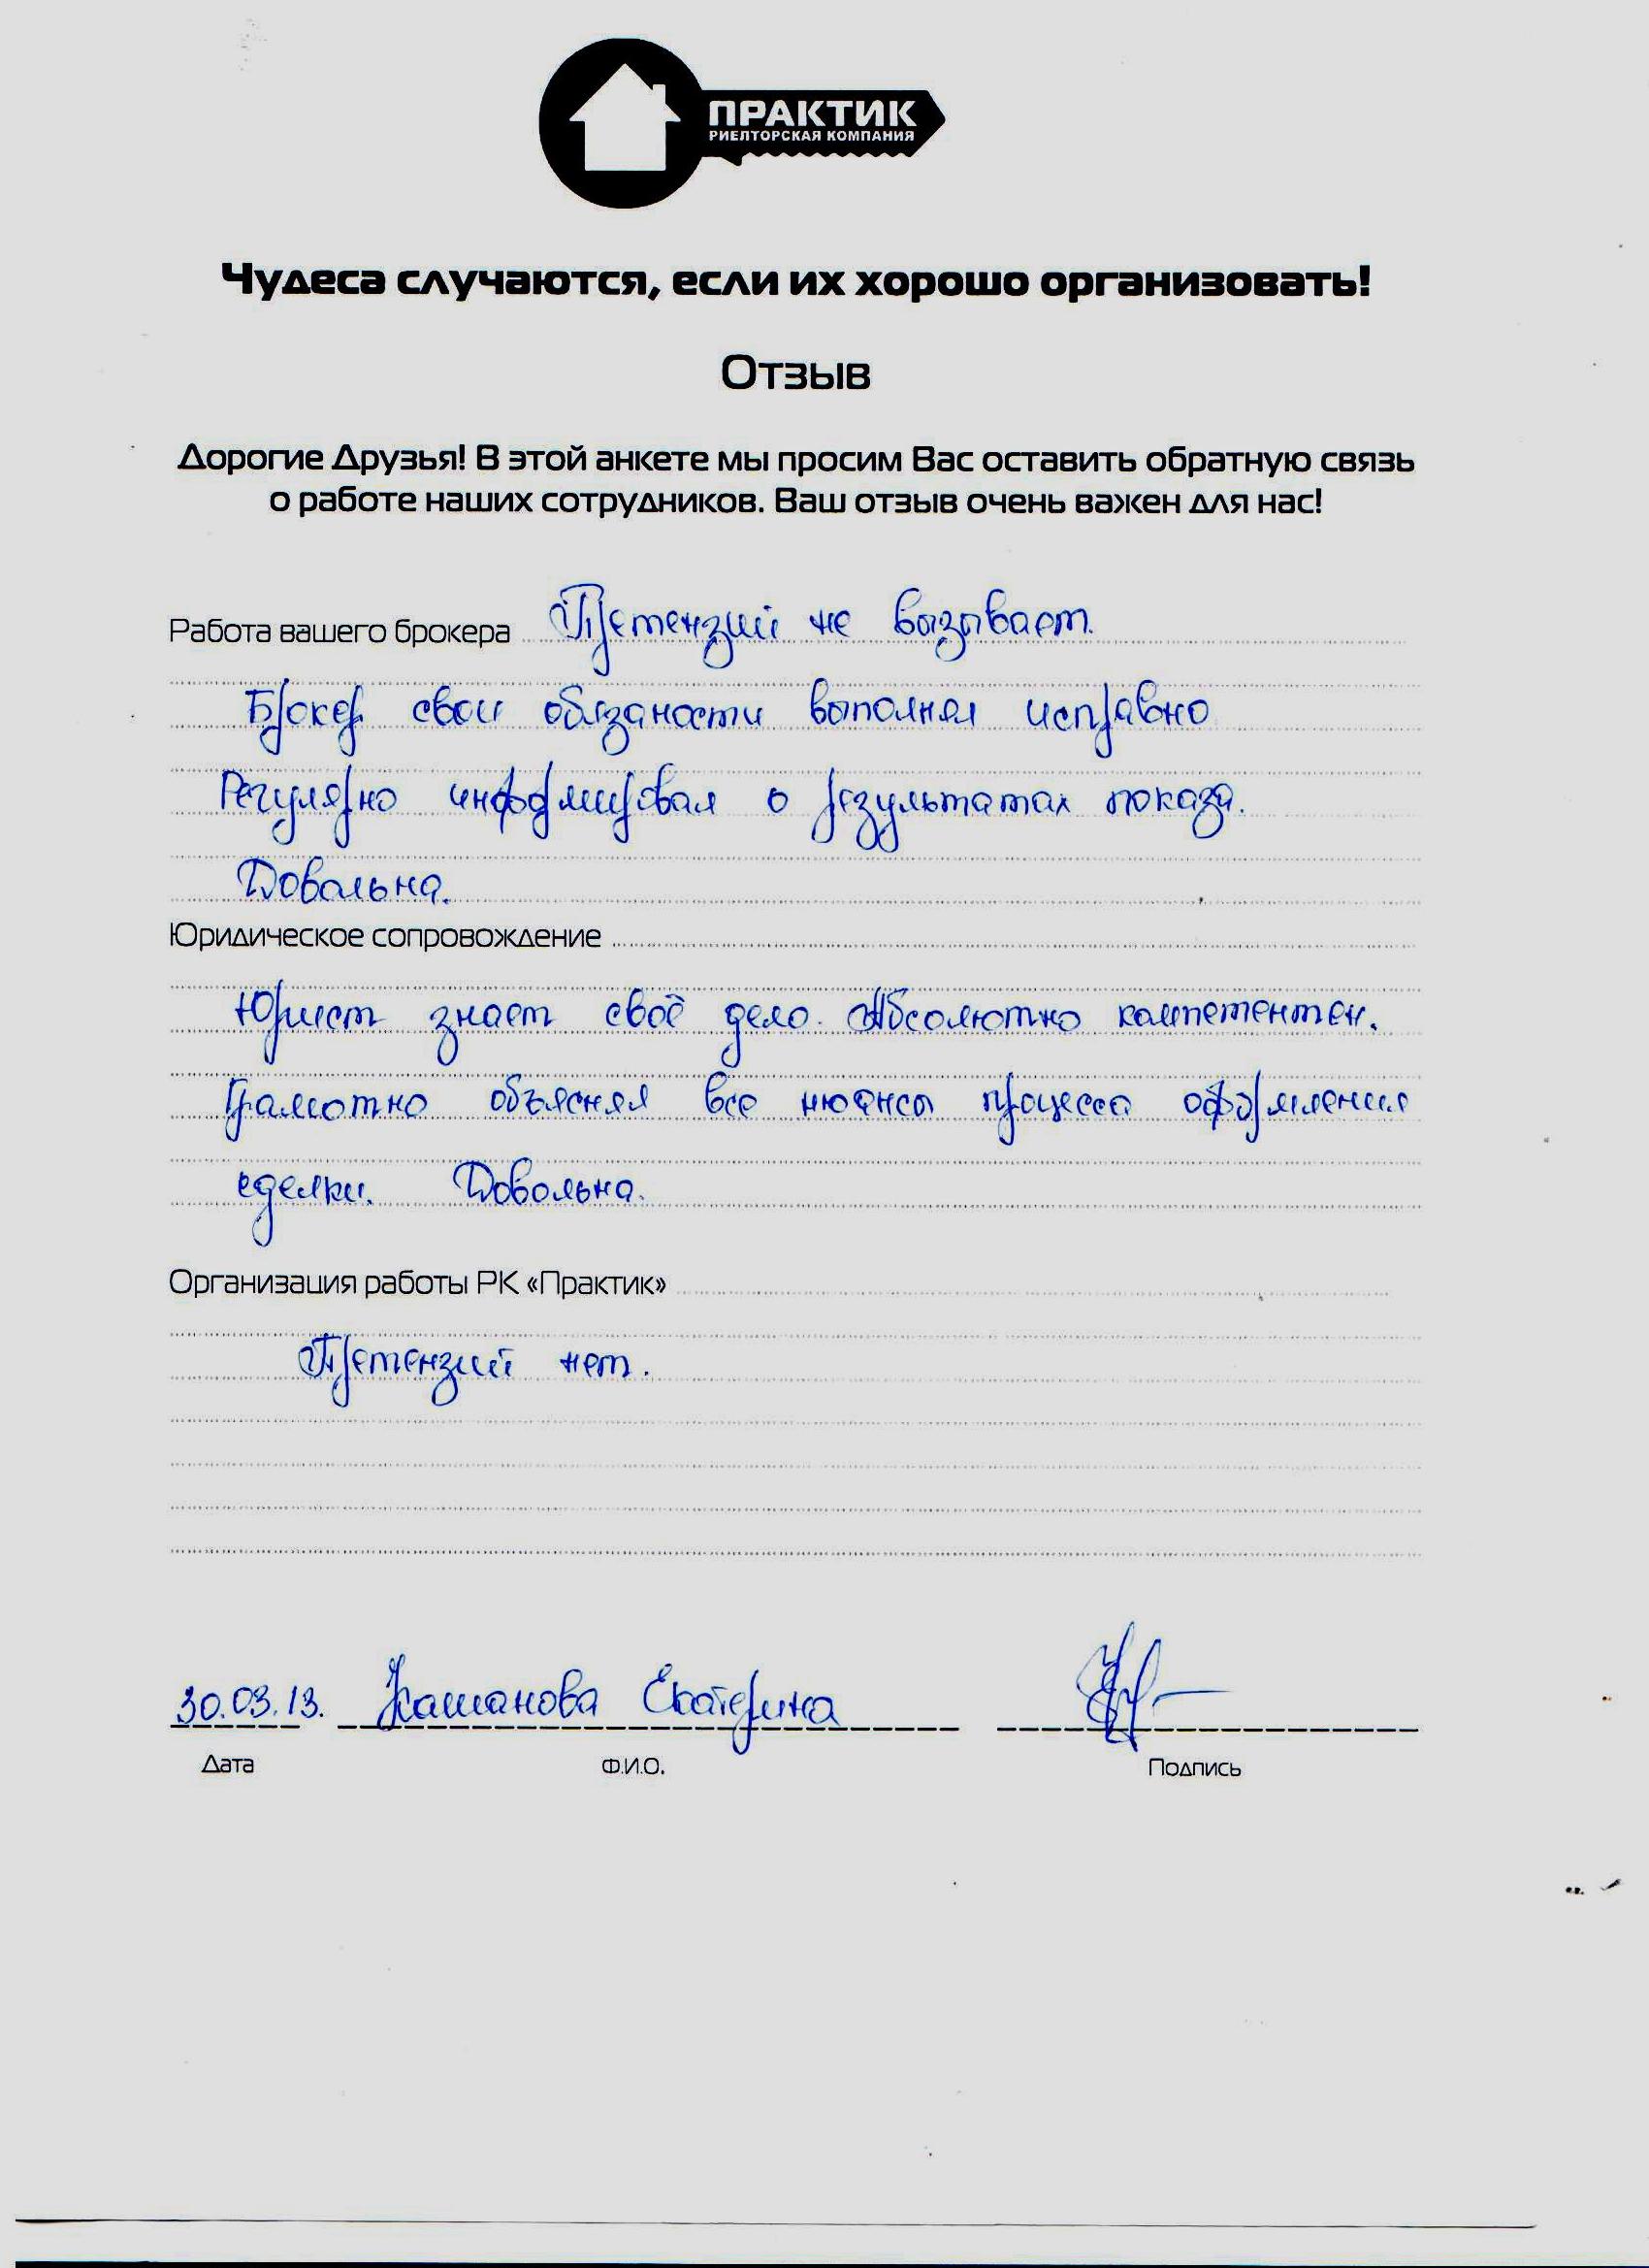 ПРАКТИК
РИЕЛТОРСКАЯ КОМПАНИЯ
Чудеса случаются, если их хорошо организовать!
Отзыв
Дорогие Друзья! В этой анкете мы просим Вас оставить обратную связь
о работе наших сотрудников. Ваш отзыв очень важен для нас!
Работа вашего брокера Претензий не вызывает.
Брокер свои обязаности выполнял исправно
Регулярно информировал о результатах показа.
Довольна.
Юридическое сопровождение
Юрист знает своё дело. Абсолютно компетентен.
Грамотно объяснял все нюансы процесса оформления
сделки. Довольна.
Организация работы РК «Практик»
Претензий нет.
30.03.13. Кашанова Екатерина
Дата Ф.И.О. Подпись